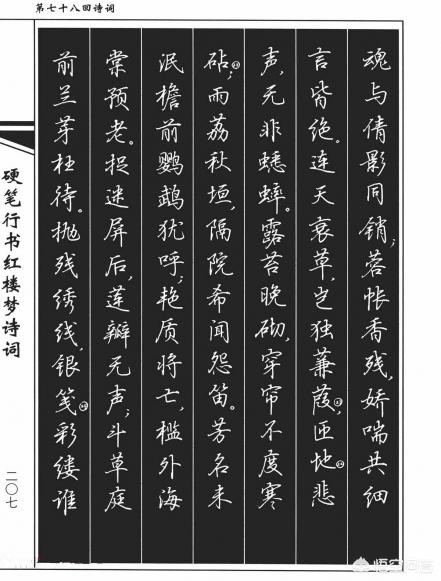 第七十八回诗词
魂与倩影同销;蓉帐香残,娇喘共细
言皆绝。连天衰草,岂独蒹葭,匝地悲
声,无非蟋蟀。露苔晚砌,穿帘不度寒
砧;雨荔秋垣,隔院希闻怨笛。芳名未
泯檐前鹦鹉犹呼;艳质将亡,槛外海
棠预老。捉迷屏后,莲瓣无声;斗草庭
前兰芽枉待。抛残绣线,银笺彩缕谁
硬笔行书红楼梦诗词
二〇七
悟空问答